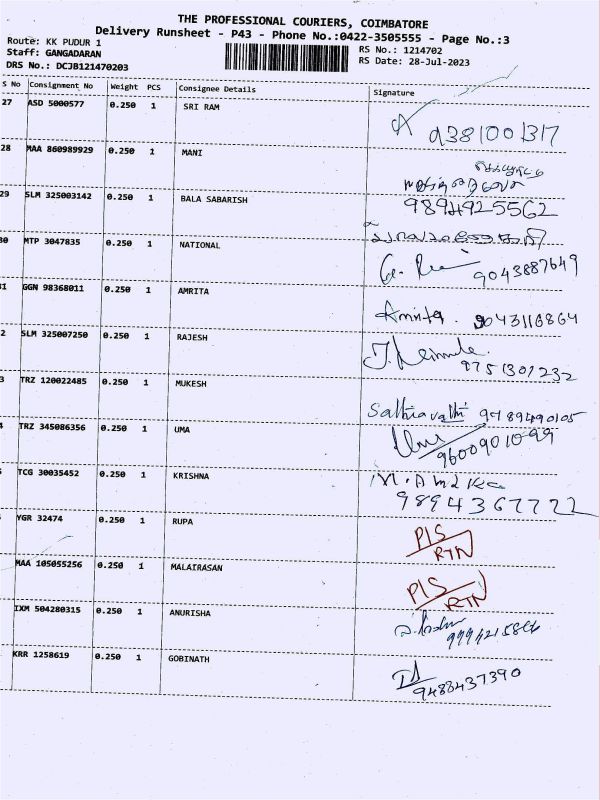 THE PROFESSIONAL COURIERS, COIMBATORE
Delivery Runsheet - P43 - Phone No.:0422-3505555 - Page No.:3
Route: KK PUDUR 1
Staff: GANGADARAN
DRS No.: DCJB121470203
RS No.: 1214702
RS Date: 28-Jul-2023
S No Consignment No Weight PCS Consignee Details Signature
27 ASD 5000577 0.250 1 SRI RAM
9381001317
28 MAA 860989929 0.250 1 MANI
29 SLM 325003142 0.250 1 BALA SABARISH 9894925562
30 MTP 3047835 0.250 1 NATIONAL
9043887649
31 GGN 98368011 0.250 1 AMRITA
Amrita. 9043116864
2 SLM 325007250 0.250 1 RAJESH
9751301232
3 TRZ 120022485 0.250 1 MUKESH
Sathiavathi 9789490105
4 TRZ 345086356 0.250 1 UMA
Uma 9600901099
TCG 30035452 0.250 1 KRISHNA
9894367722
YGR 32474 0.250 1 RUPA
P/S
RTN
MAA 105055256 0.250 1 MALAIRASAN
P/S
RTN
IXM 504280315 0.250 1 ANURISHA
KRR 1258619 0.250 1 GOBINATH
9488437390